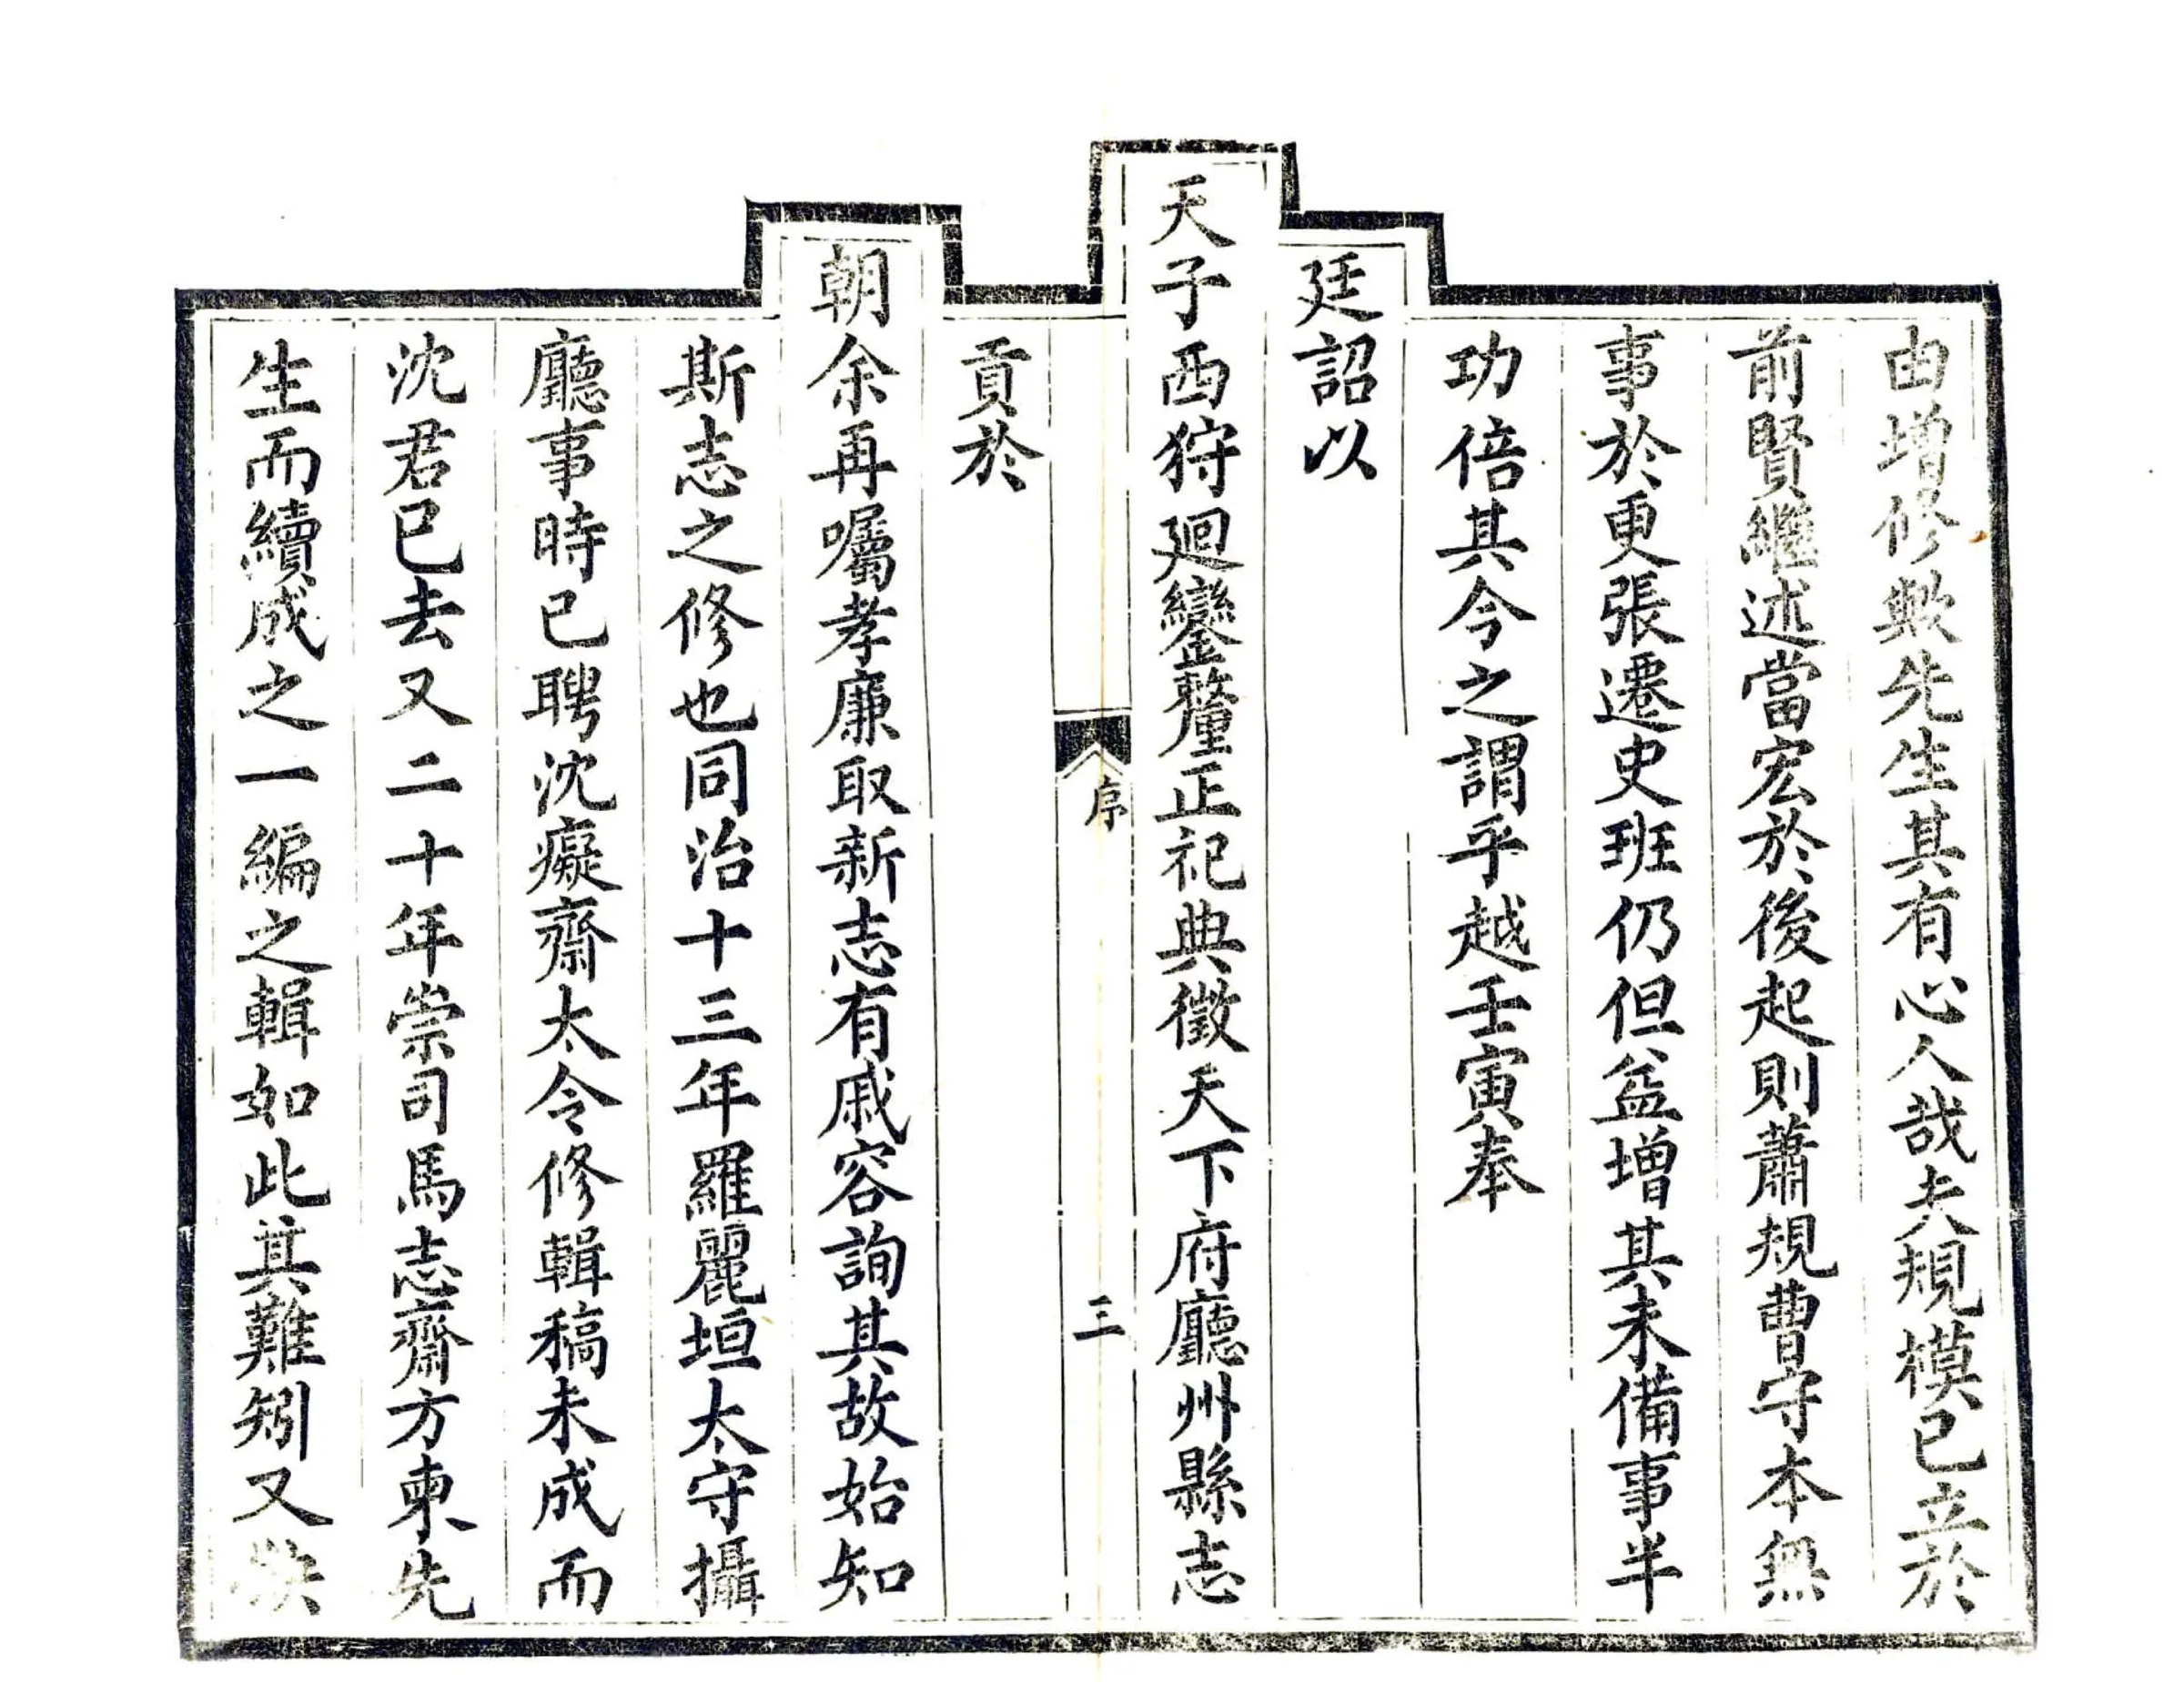 由增修歟先生其有心人哉夫規模已立於
前賢繼述當宏於後起則蕭規曹守本無
事於更張遷史班仍但益增其未備事半
功倍其今之謂乎越壬寅奉
廷詔以
天子西狩迴鑾釐正祀典徵天下府廳州縣志
序
三
貢於
朝余再囑孝廉取新志有戚容詢其故始知
斯志之修也同治十三年羅麗垣太守攝
廳事時已聘沈癡齋太令修輯稿未成而
沈君已去又二十年崇司馬志齋方柬先
生而續成之一編之輯如此其難矧又